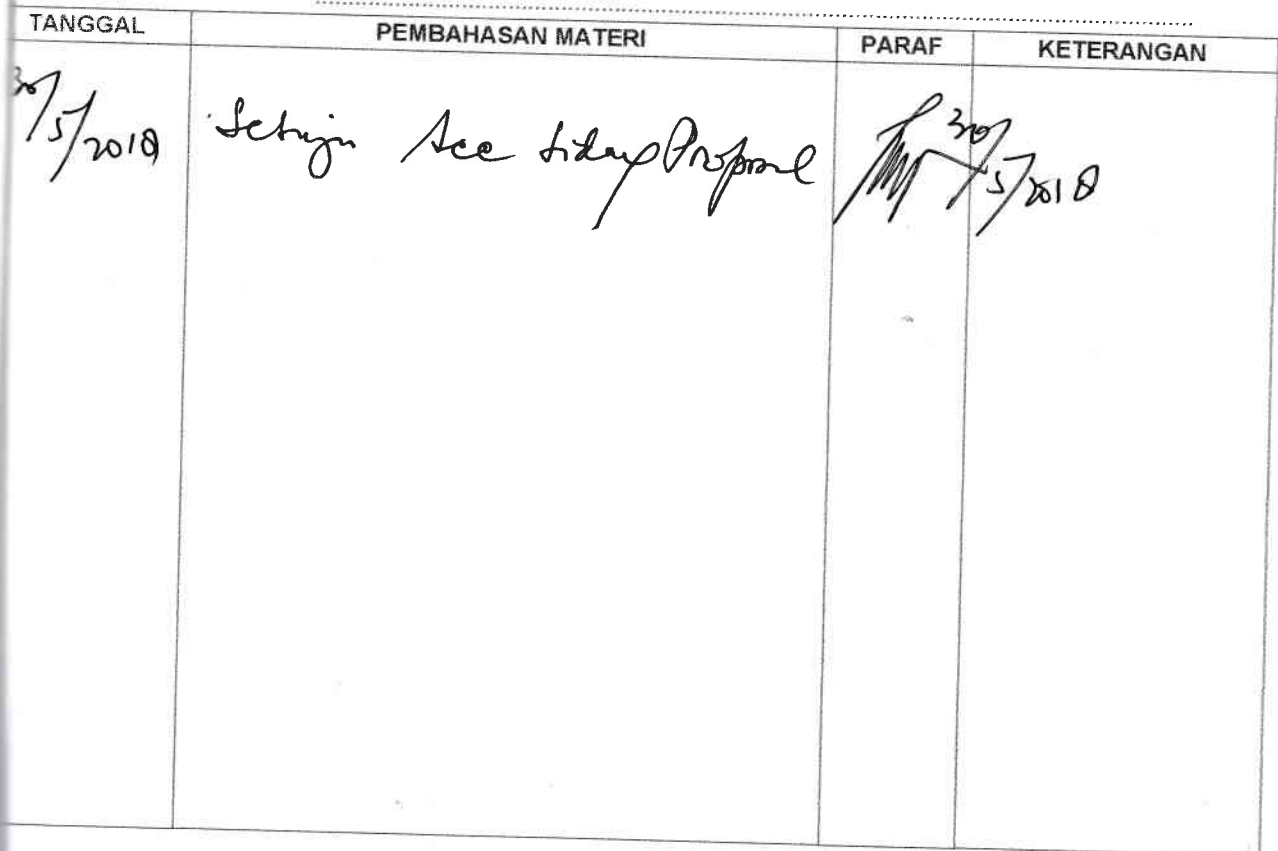 TANGGAL PEMBAHASAN MATERI PARAF KETERANGAN
30/5/2018 Setuju Acc sidang Proposal 30/5/2018